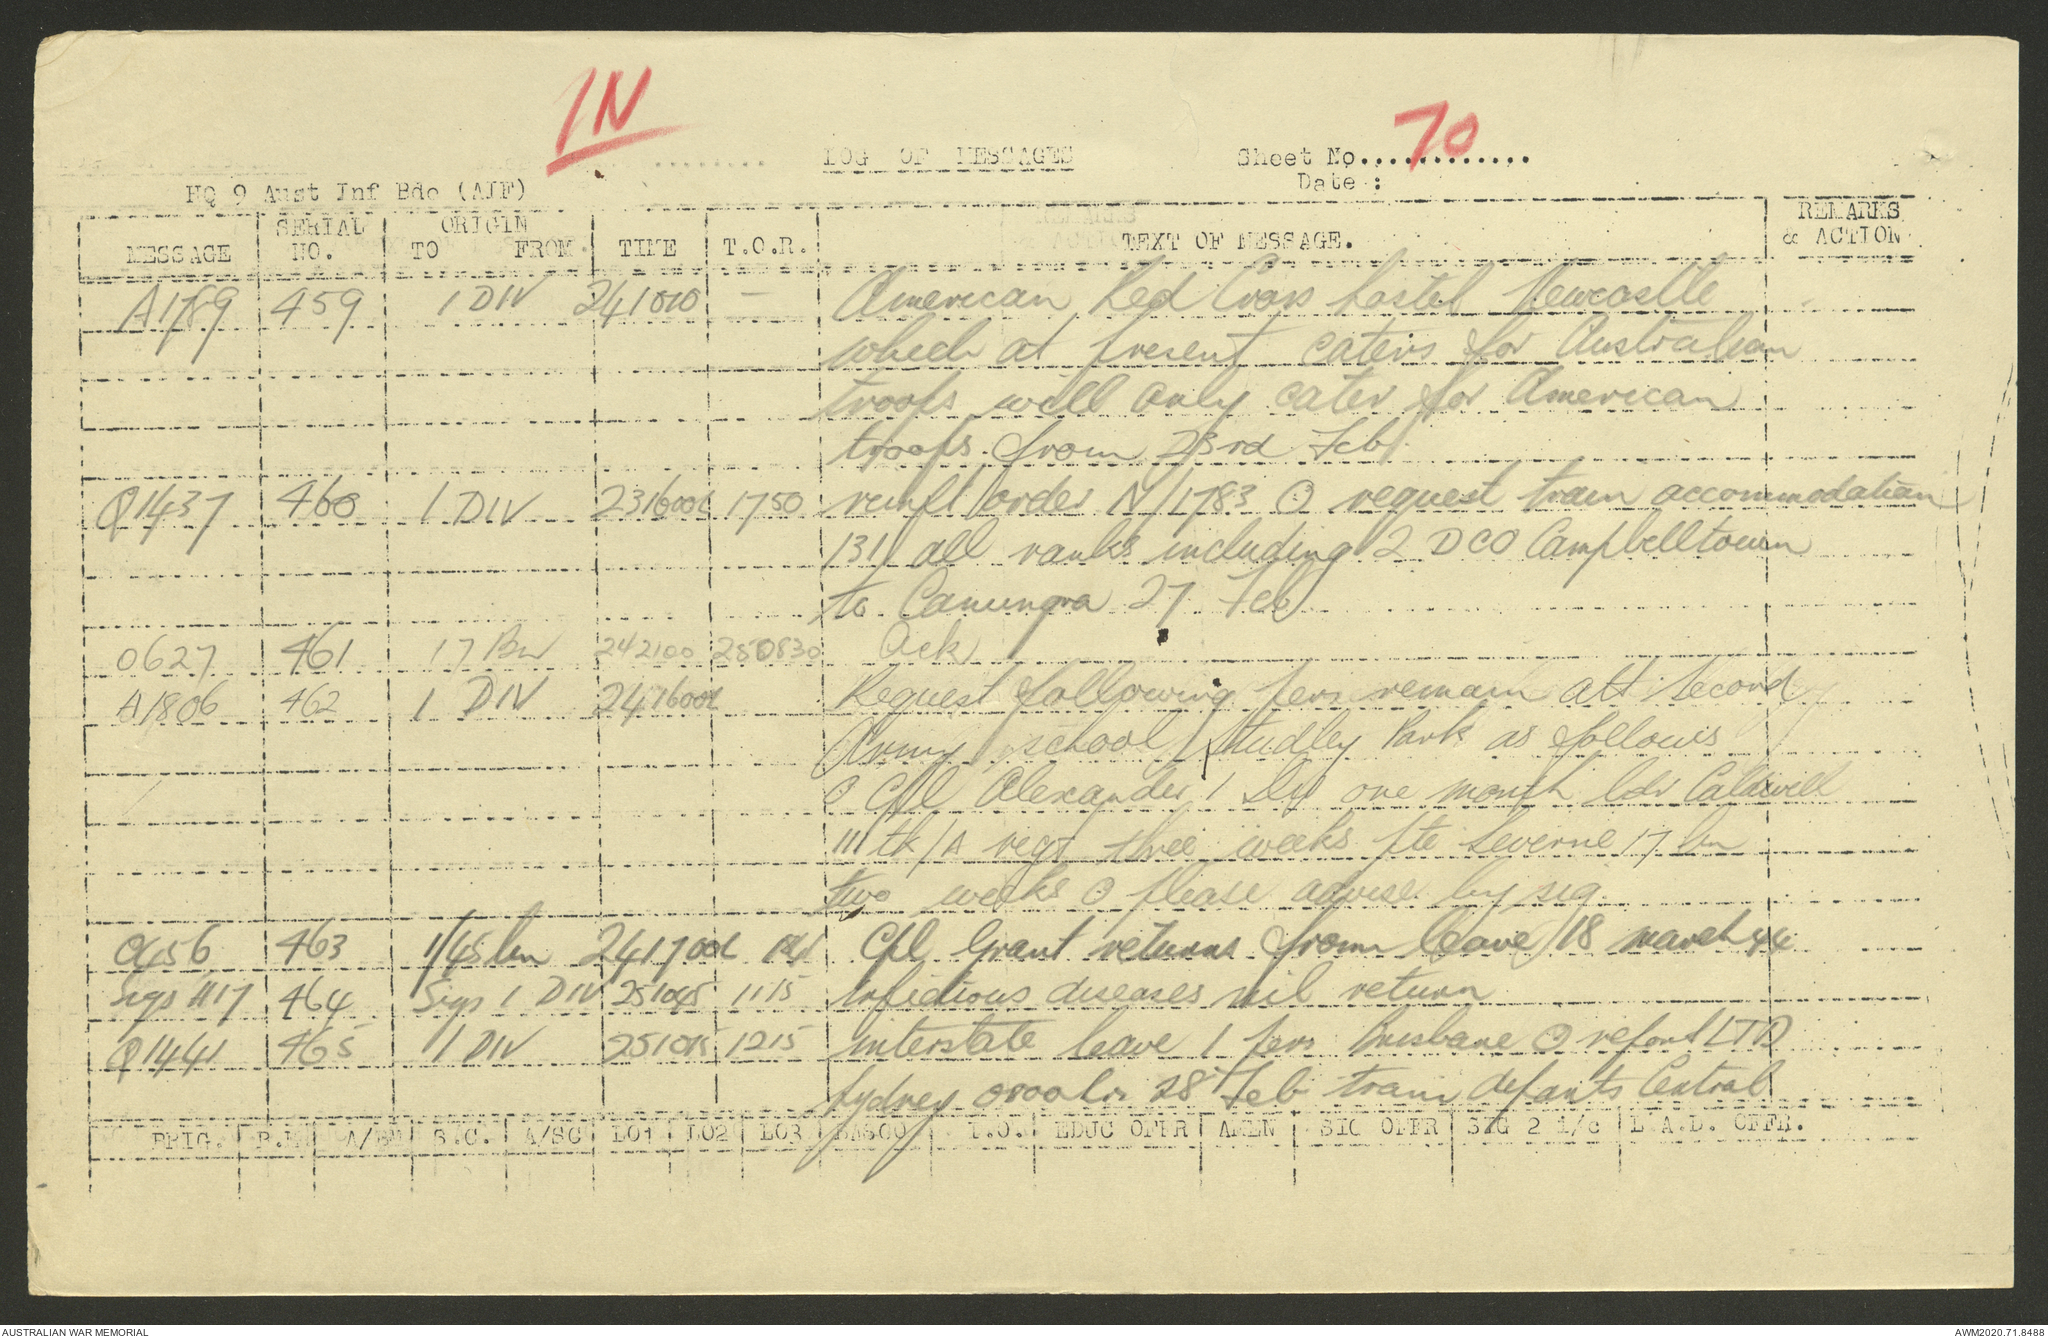 IN
LOG OF MESSAGES
Sheet No............. 70
Date :
HQ 9 Aust Inf Bde (AIF)
MESSAGE SERIAL NO. ORIGIN TO FROM TIME T.O.R. TEXT OF MESSAGE. REMARKS & ACTION
A1789 459 1 DIV 241010 — American Red Cross hostel Newcastle
which at present caters for Australian
troops will only cater for American
troops from 23rd Feb
Q1437 460 1 DIV 231600L 1750 reinft order N/1783 O request train accommodation
131 all ranks including 2 DCO Campbelltown
to Canungra 27 Feb
0627 461 17 Bn 242100 250830 Ack
A1806 462 1 DIV 241600L Request following pers remain att Second
Army school Studley Park as follows
O Cpl Alexander 1 Div one month Bdr Caldwell
111 tk/A regt three weeks pte Leverne 17 bn
two weeks O please advise by sig.
463 1/45 bn 241700L Cpl Grant returns from leave 18 march 44
Sigs 1117 464 Sigs 1 DIV 251045 1115 Infectious diseases nil return
Q1441 465 1 DIV 251015 1215 interstate leave 1 pers Brisbane O report LTD
Sydney 0800 hrs 28 Feb train departs Central
BRIG. B.M A/BM S.C. A/SC LO1 LO2 LO3 BASOO I.O. EDUC OFFR AMEN SIG OFFR SIG 2 i/c L.A.D. OFFR.
AUSTRALIAN WAR MEMORIAL
AWM2020.71.8488